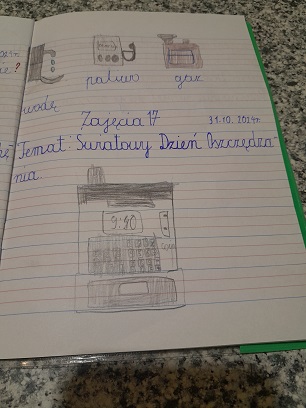 ?
paliwo gaz
wodę
Zajęcia 17 31.10.2014r.
Temat: Światowy Dzień Oszczędza-
nia.
9:40